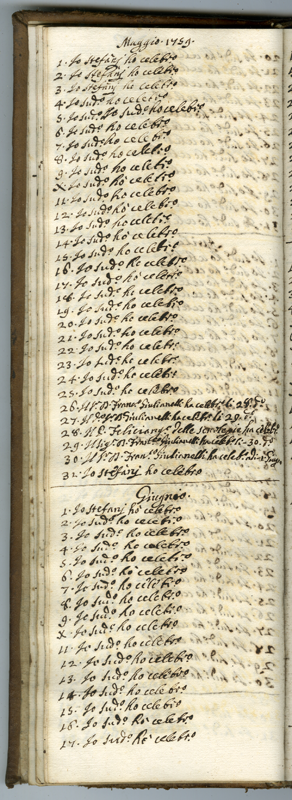 Maggio. 1759.
1. Io Stefanj ho celebro
2. Io Stefanj ho celebro
3. Io Stefanj ho celebro
4. Io Sud.o ho celebro
5. Io Sud.o Io Sud.o ho celebro
6. Io Sud.o ho celebro
7. Io Sud.o ho celebro
8. Io Sud.o ho celebro
9. Io Sud.o ho celebro
X. Io Sud.o ho celebro
11. Io Sud.o ho celebro
12. Io Sud.o ho celebro
13. Io Sud.o ho celebro
14. Io Sud.o ho celebro
15. Io Sud.o ho celebro
16. Io Sud.o ho celebro
17. Io Sud.o ho celebro
18. Io Sud.o ho celebro
19. Io Sud.o ho celebro
20. Io Sud.o ho celebro
21. Io Sud.o ho celebro
22. Io Sud.o ho celebro
23. Io Sud.o ho celebro
24. Io Sud.o ho celebro
25. Io Sud.o ho celebro
26. Fran.co Giulianelli ha celeb.
27. Giulianelli ha celeb.
28. Feliciang. delle ha celeb.
29. Fran.co Giulianelli ha celeb. 30. d.o
30. Fran.co Giulianelli ha celeb.
31. Io Stefanj ho celebro
Giugno
1. Io Stefanj ho celebro
2. Io Sud.o ho celebro
3. Io Sud.o ho celebro
4. Io Sud.o ho celebro
5. Io Sud.o ho celebro
6. Io Sud.o ho celebro
7. Io Sud.o ho celebro
8. Io Sud.o ho celebro
9. Io Sud.o ho celebro
X. Io Sud.o ho celebro
11. Io Sud.o ho celebro
12. Io Sud.o ho celebro
13. Io Sud.o ho celebro
14. Io Sud.o ho celebro
15. Io Sud.o ho celebro
16. Io Sud.o ho celebro
17. Io Sud.o ho celebro